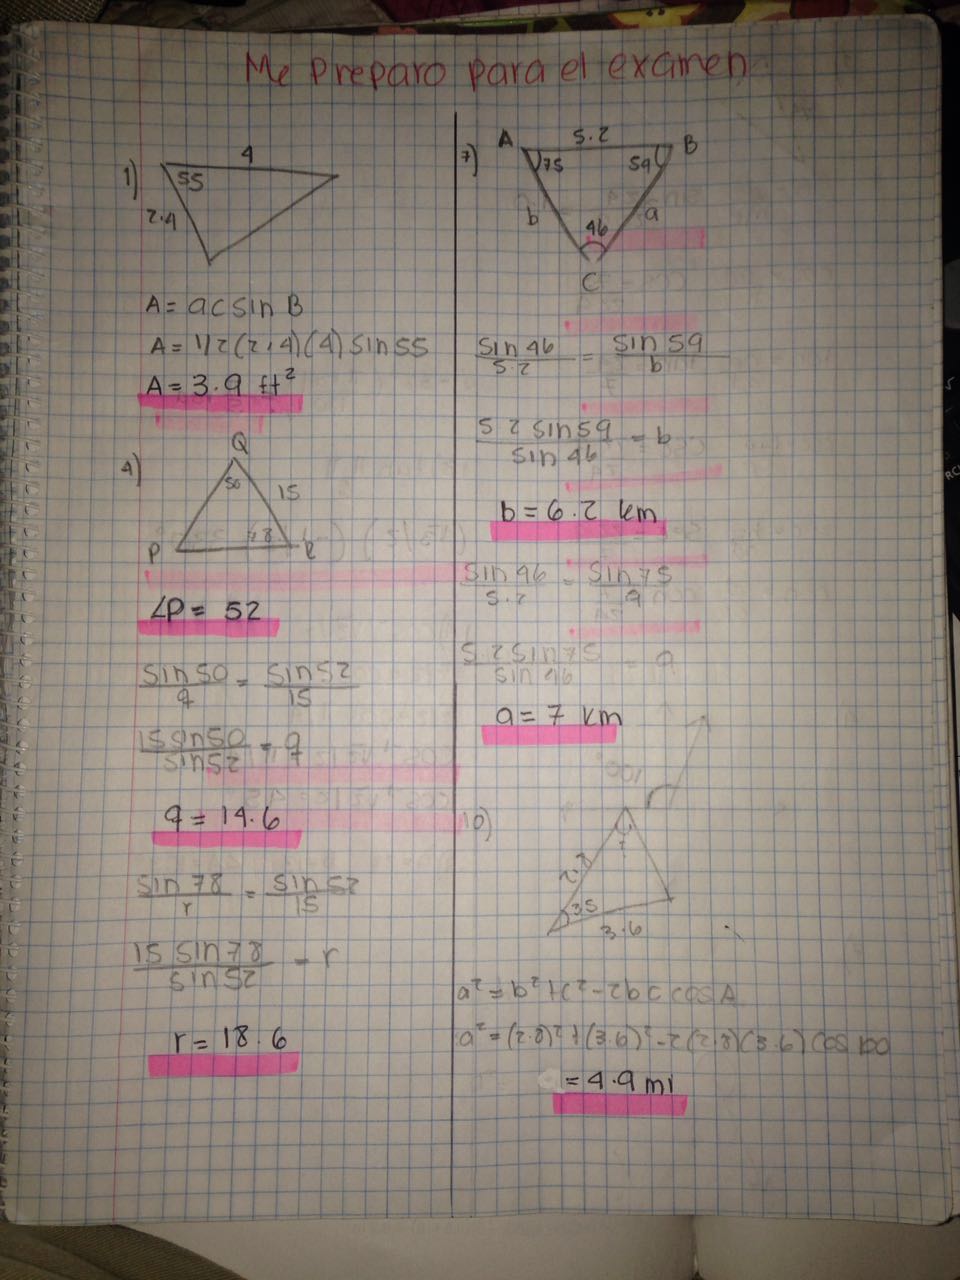 Me preparo para el examen
1)
4
55
2.4
A = ac sin B
A = 1/2 (2.4)(4) sin 55
A = 3.9 ft²
4)
Q
50
15
78
P
R
∠P = 52
sin 50 / q = sin 52 / 15
15 sin 50 / sin 52 = q
q = 14.6
sin 78 / r = sin 52 / 15
15 sin 78 / sin 52 = r
r = 18.6
7)
A
5.2
B
75
59
b
a
46
C
sin 46 / 5.2 = sin 59 / b
5.2 sin 59 / sin 46 = b
b = 6.2 km
sin 46 / 5.2 = sin 75 / a
5.2 sin 75 / sin 46 = a
a = 7 km
10)
100°
2.8
35
3.6
a² = b² + c² - 2bc cos A
a² = (2.8)² + (3.6)² - 2(2.8)(3.6) cos 100
= 4.9 mi